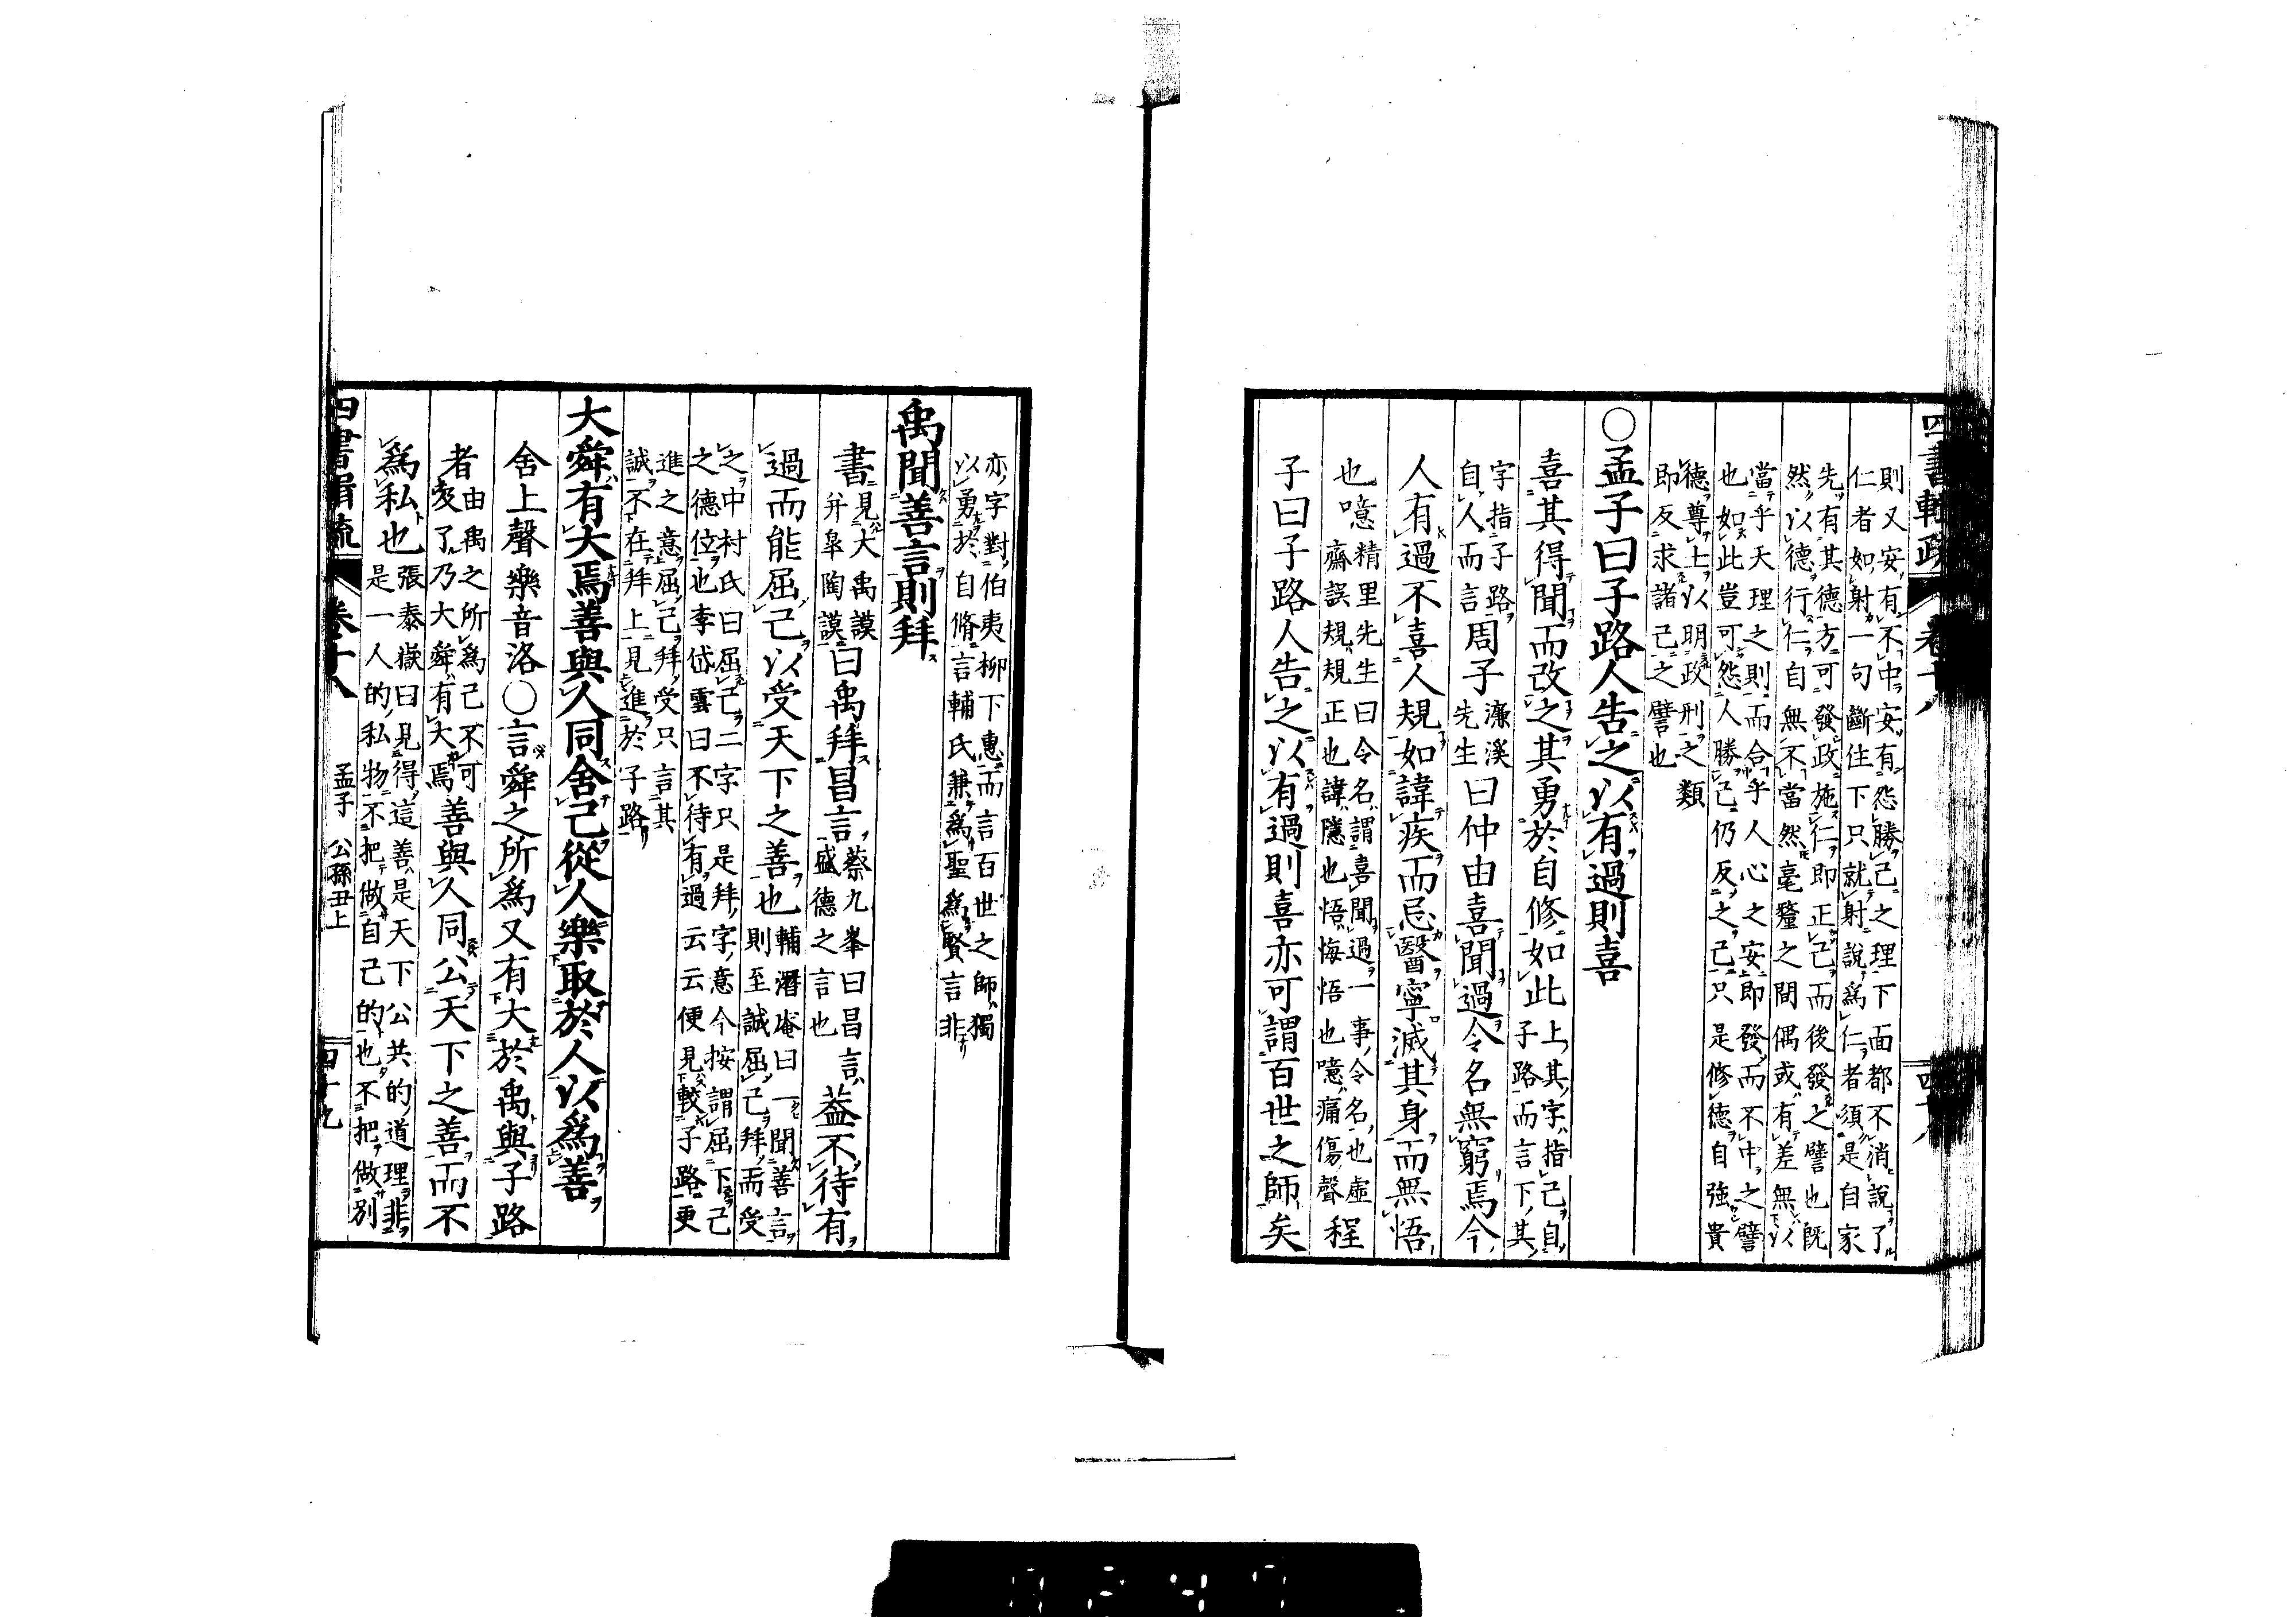 四書輯疏 卷十八 四十八
則又安有不中安有怨勝己之理下面都不消說了
仁者如射一句斷住下只就射說爲仁者須是自家
先有其德方可發政施仁即正己而後發之譬也既
然以德行仁自無不當然毫釐之間偶或有差無以
當乎天理之則而合乎人心之安即發而不中之譬
也如此豈可怨人勝己仍反之己只是修德自強貴
德尊士以明政刑之類
即反求諸己之譬也
○孟子曰子路人告之以有過則喜
喜其得聞而改之其勇於自修如此上其字指己自下其
字指子路自人而言周子濂溪先生曰仲由喜聞過令名無窮焉今
人有過不喜人規如諱疾而忌醫寧滅其身而無悟
也噫精里先生曰令名謂喜聞過一事令名也虛齋誤規規正也諱隱也悟悔悟也噫痛傷聲程
子曰子路人告之以有過則喜亦可謂百世之師矣
亦字對伯夷柳下惠而言百世之師獨
以勇於自脩言輔氏兼爲聖爲賢言非
禹聞善言則拜
書見大禹謨并皋陶謨曰禹拜昌言蔡九峯曰昌言盛德之言也蓋不待有
過而能屈己以受天下之善也輔潛庵曰一聞善言則至誠屈己拜而受
之中村氏曰屈己二字只是拜字意今按謂屈下己
之德位也李岱雲曰不待有過云云便見較子路更
進之意屈己拜受只言其
誠不在拜上見進於子路
大舜有大焉善與人同舍己從人樂取於人以爲善
舍上聲樂音洛○言舜之所爲又有大於禹與子路
者由禹之所爲己不可及了乃大舜有大焉善與人同公天下之善而不
爲私也張泰嶽曰見得這善是天下公共的道理非是一人的私物不把做自己的也不把做別
四書輯疏 卷十八 孟子 公孫丑上 四十九